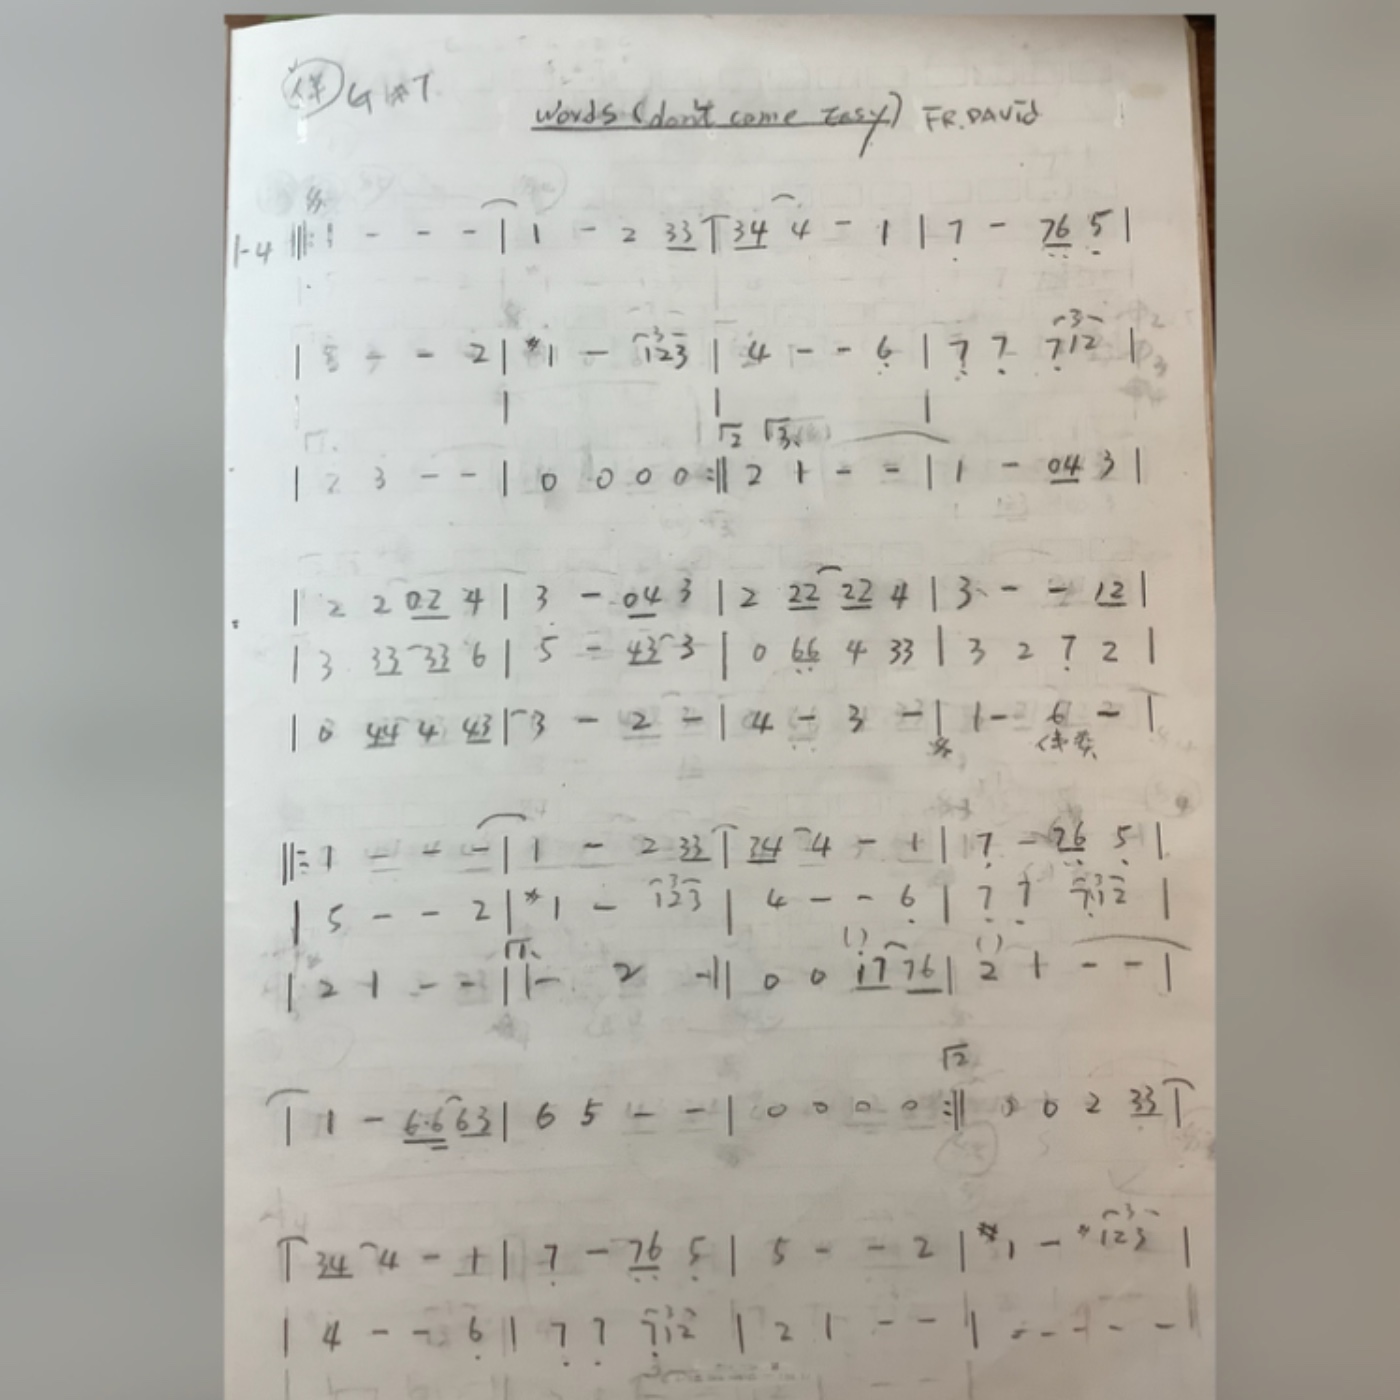 words (don't come Easy) FR. DAVID
1-4 ‖: 1 - - - | 1 - 2 33 | 34 4 - 1 | 7 - 76 5 |
| 5 - - 2 | #1 - 123 | 4 - - 6 | 7 7 712 |
| 2 3 - - | 0 0 0 0 :‖ 2 1 - - | 1 - 04 3 |
| 2 2 02 4 | 3 - 04 3 | 2 22 22 4 | 3 - - 12 |
| 3 33 33 6 | 5 - 43 3 | 0 66 4 33 | 3 2 7 2 |
| 0 44 4 43 | 3 - 2 - | 4 - 3 - | 1 - 6 - |
‖: 1 - - - | 1 - 2 33 | 34 4 - 1 | 7 - 76 5 |
| 5 - - 2 | #1 - 123 | 4 - - 6 | 7 7 712 |
| 2 1 - - | 1 - 2 - | 0 0 17 76 | 2 1 - - |
| 1 - 6·6 63 | 6 5 - - | 0 0 0 0 :‖ 0 0 2 33 |
| 34 4 - 1 | 7 - 76 5 | 5 - - 2 | #1 - #123 |
| 4 - - 6 | 7 7 712 | 2 1 - - | - - - - |